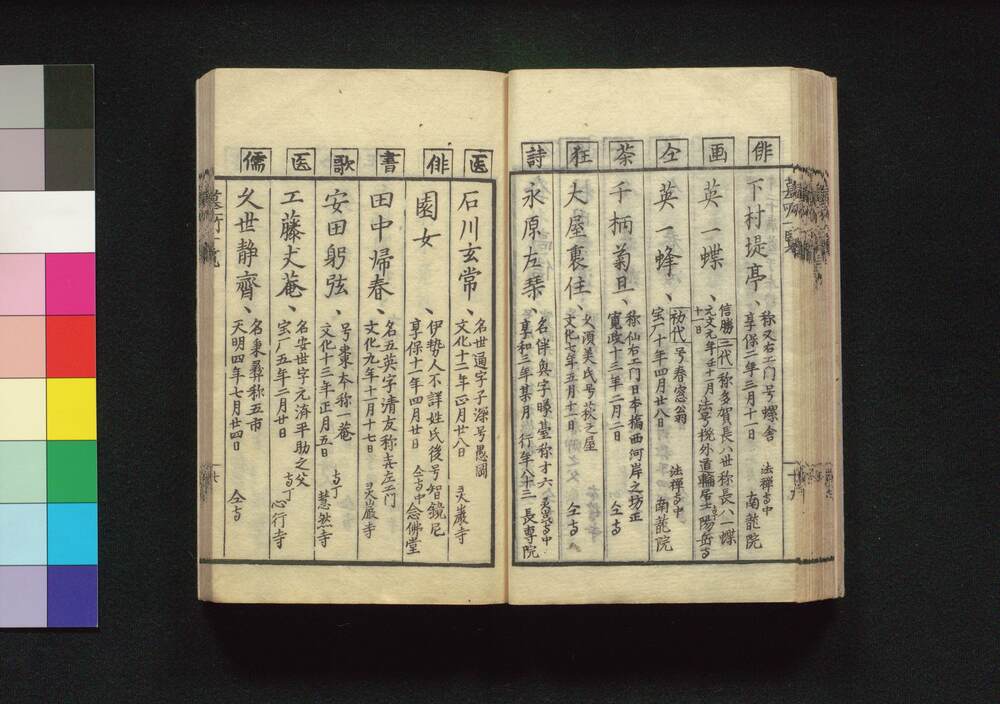 俳
下村堤亭、
称又右エ門号螺舎
享保二年三月十一日
法禅寺中
南龍院
画
英一蝶、
信勝二代称多賀長八世称長八一蝶
元文元年壬十一月
十一日
陽岳寺
仝
英一蜂、
初代号春窓翁
宝厂十年四月廿八日
法禅寺中
南龍院
茶
千柄菊旦、
称仙右エ門日本橋西河岸之坊正
寛政十三年二月二日
仝寺
狂
大屋裏住、
久須美氏号萩之屋
文化七年五月十一日
仝寺
詩
永原左琹、
名伴奥字
臺称才六
享和三年某月
行年八十三
長専院
医
石川玄常、
名世通字子深号愚岡
文化十二年正月廿八日
灵巌寺
俳
園女、
伊勢人不詳姓氏後号智鏡尼
享保十一年四月廿日
仝寺中
念佛堂
書
田中帰春、
名五英字清友称㐂左エ門
文化九年十一月十七日
灵巌寺
歌
安田躬弦、
号棗本称一菴
文化十三年正月五日
寺丁
慧然寺
医
工藤丈菴、
名安世字元済平助之父
宝厂五年二月廿日
寺丁
心行寺
儒
久世静齊、
名秉彝称五市
天明四年七月廿四日
仝寺
墓所一覧